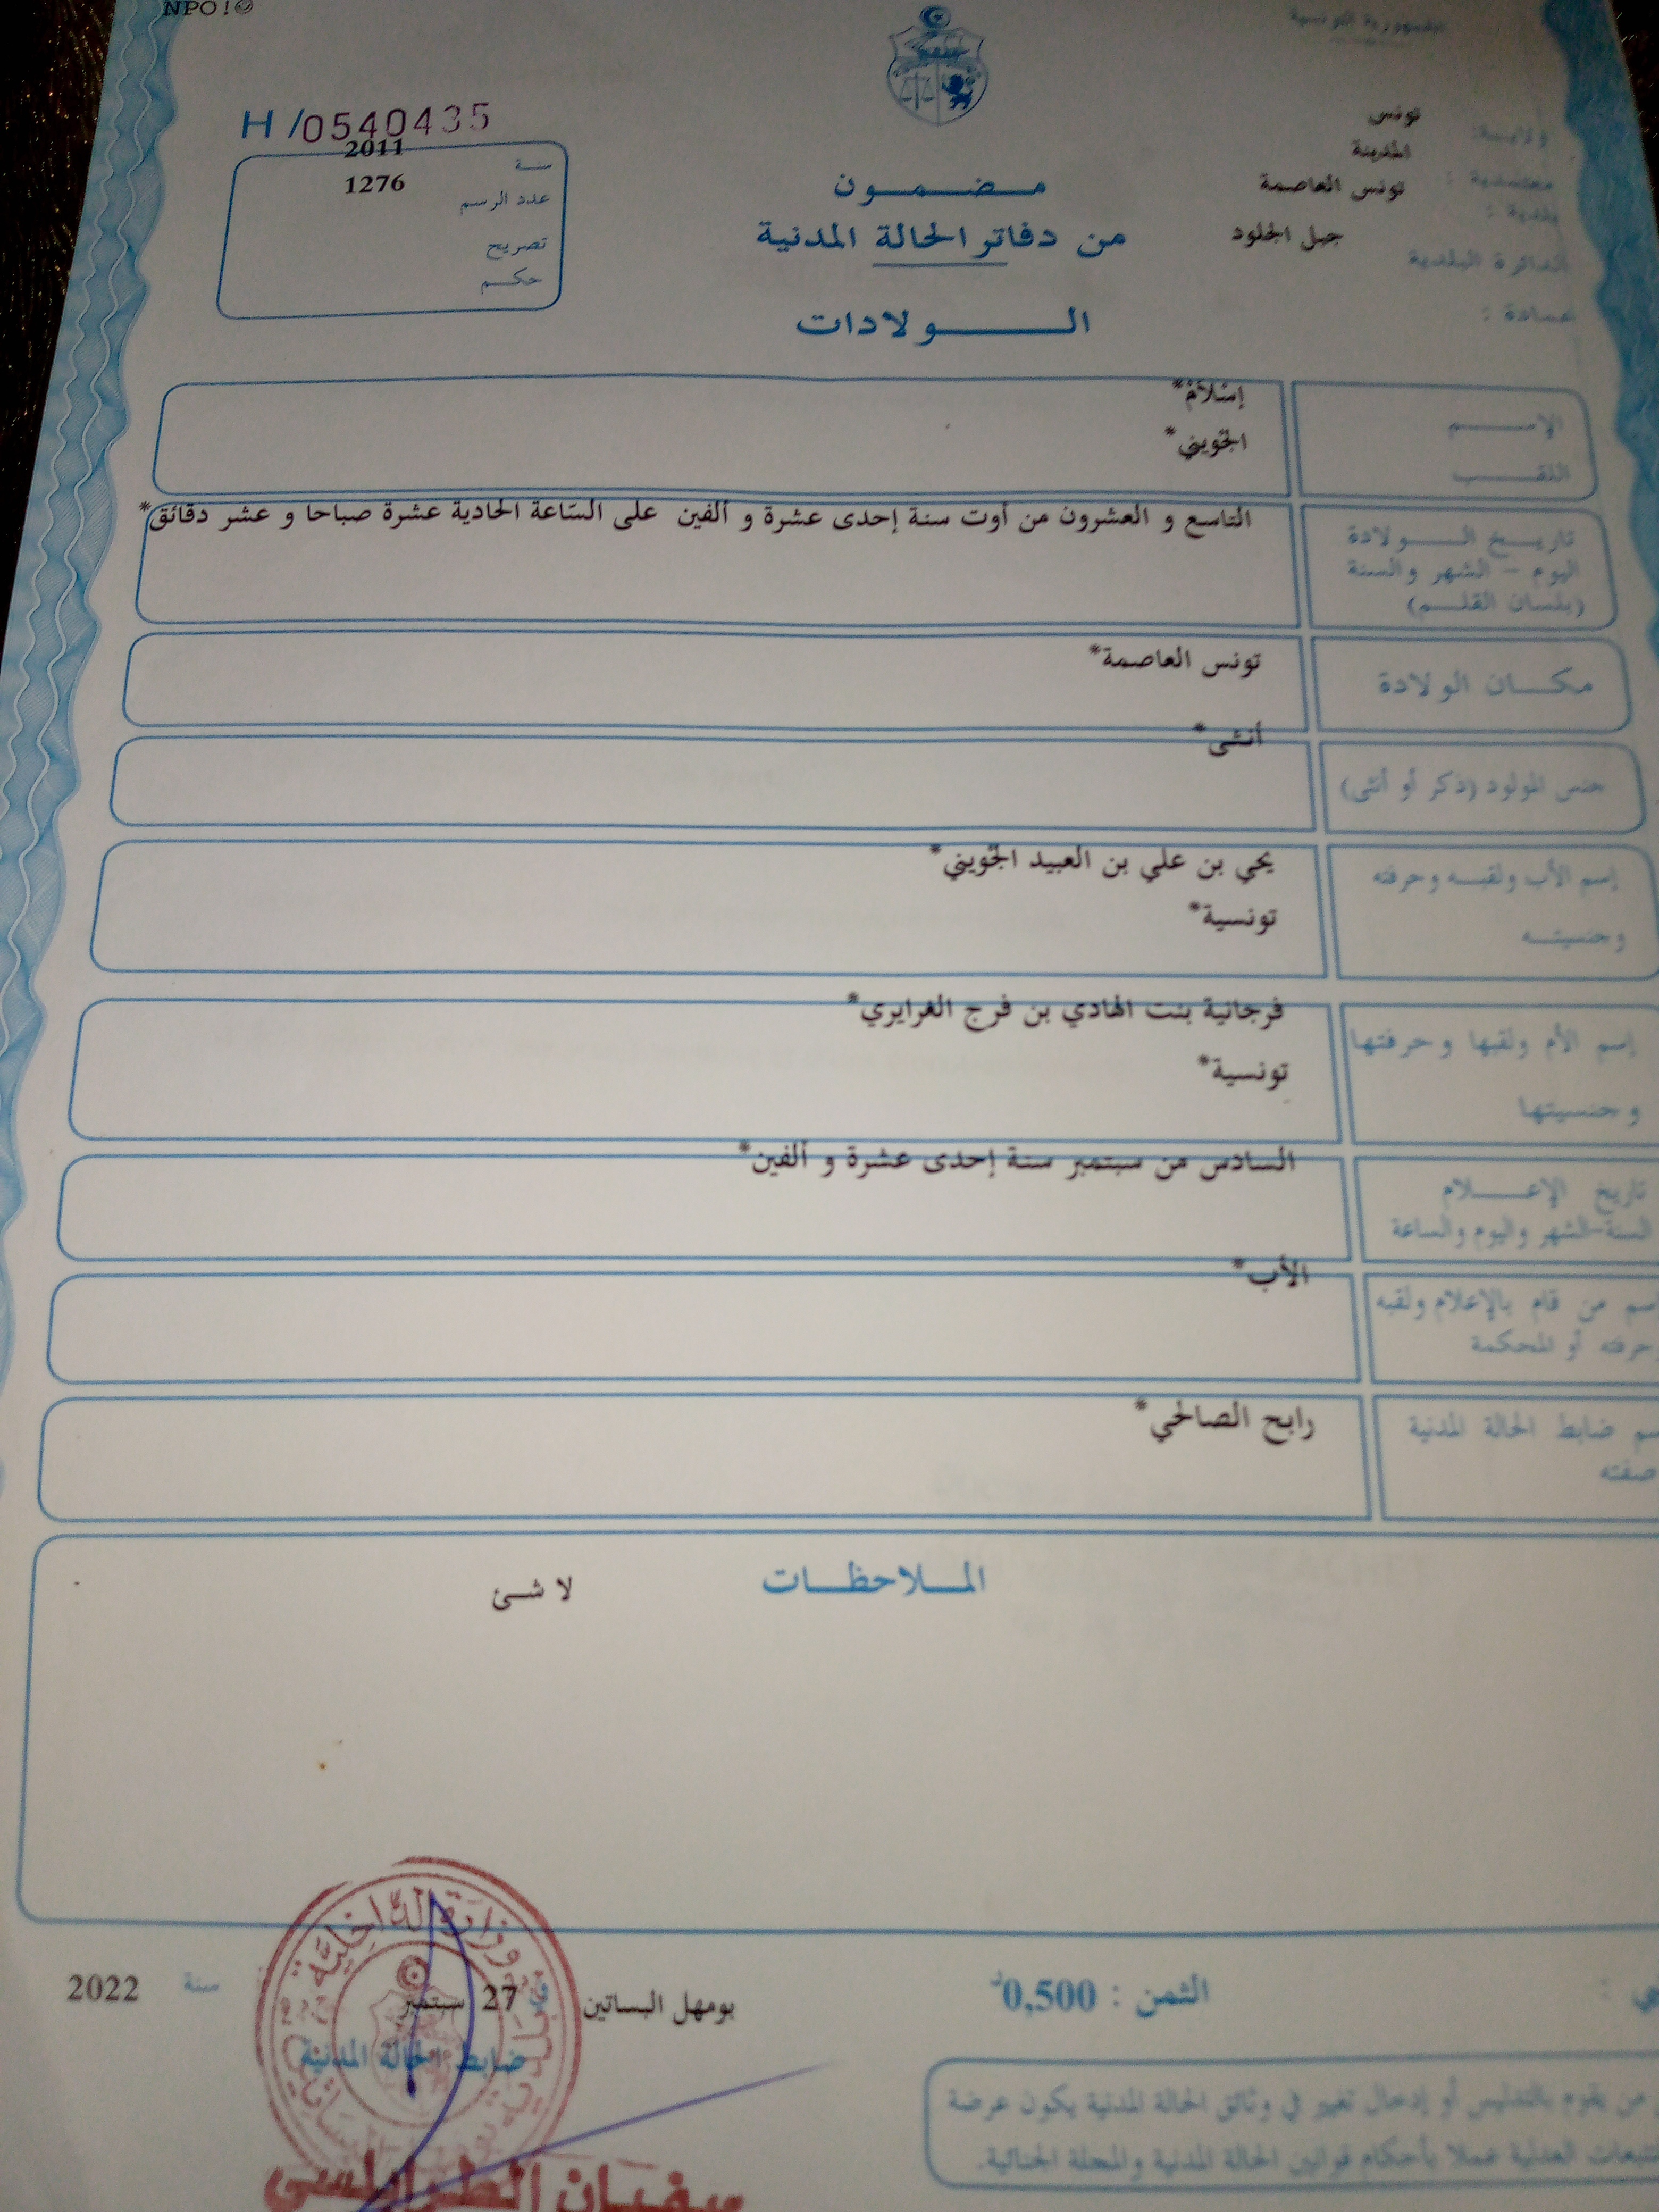 NPO!
الجمهورية التونسية
H/0540435
سنة 2011
عدد الرسم 1276
تصريح
حكم
مضمون
من دفاتر الحالة المدنية
الولادات
ولاية: تونس
معتمدية: المدينة
بلدية: تونس العاصمة
الدائرة البلدية جبل الجلود
عمادة:
الإسم إسلام*
اللقب الجويني*
تاريخ الولادة
اليوم - الشهر والسنة
(بلسان القلم)
التاسع و العشرون من أوت سنة إحدى عشرة و ألفين على السّاعة الحادية عشرة صباحا و عشر دقائق*
مكان الولادة تونس العاصمة*
جنس المولود (ذكر أو أنثى) أنثى*
إسم الأب ولقبه وحرفته يحي بن علي بن العبيد الجويني*
وجنسيته تونسية*
إسم الأم ولقبها وحرفتها فرجانية بنت الهادي بن فرج الغرايري*
وجنسيتها تونسية*
تاريخ الإعلام
السنة-الشهر واليوم والساعة
السادس من سبتمبر سنة إحدى عشرة و ألفين*
إسم من قام بالإعلام ولقبه
حرفته أو المحكمة
الأب*
ضابط الحالة المدنية
صفته
رابح الصالحي*
الملاحظات
لا شئ
الثمن : 0,500د
بومهل البساتين في 27 سبتمبر سنة 2022
ضابط الحالة المدنية
وزارة الداخلية
من يقوم بالتدليس أو إدخال تغيير في وثائق الحالة المدنية يكون عرضة
للتتبعات العدلية عملا بأحكام قوانين الحالة المدنية والمجلة الجنائية.
سفيان الطرابلسي